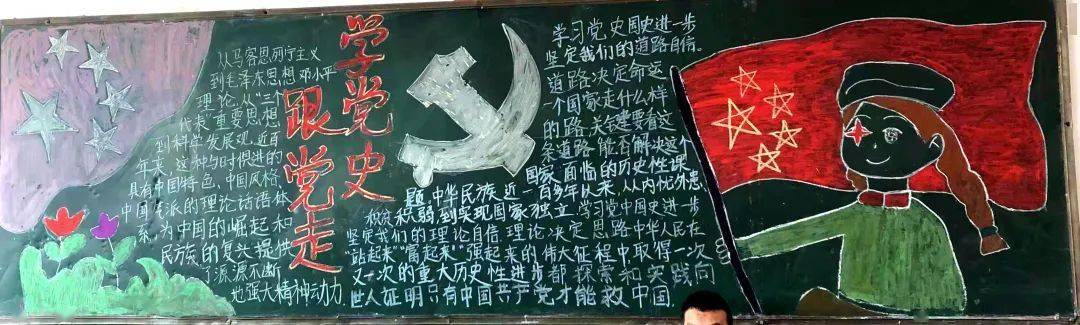 从马客思列宁主义
到毛泽东思想邓小平
理论,从“三个
代表”重要思想
到科学发展观,近百
年来,这种与时俱进的
具有中国特色、中国风格、
中国气派的理论话语体
系,为中国的崛起和
民族的复兴提供
了源源不断
地强大精神动力
学党史
跟党走
学习党史国史进一步
坚定我们的道路自信。
道路决定命运
一个国家走什么样
的路,关键要看这
条道路能否解决这个
国家面临的历史性课
题,中华民族近一百多年以来,从内忧外患、
积弱到实现国家独立,学习党中国史进一步
坚定我们的理论自信,理论决定思路中华人民在
“站起来”“富起来”强起来的伟大征程中取得一次
又一次的重大历史性进步都探索和实践向
世人证明只有中国共产党才能救中国